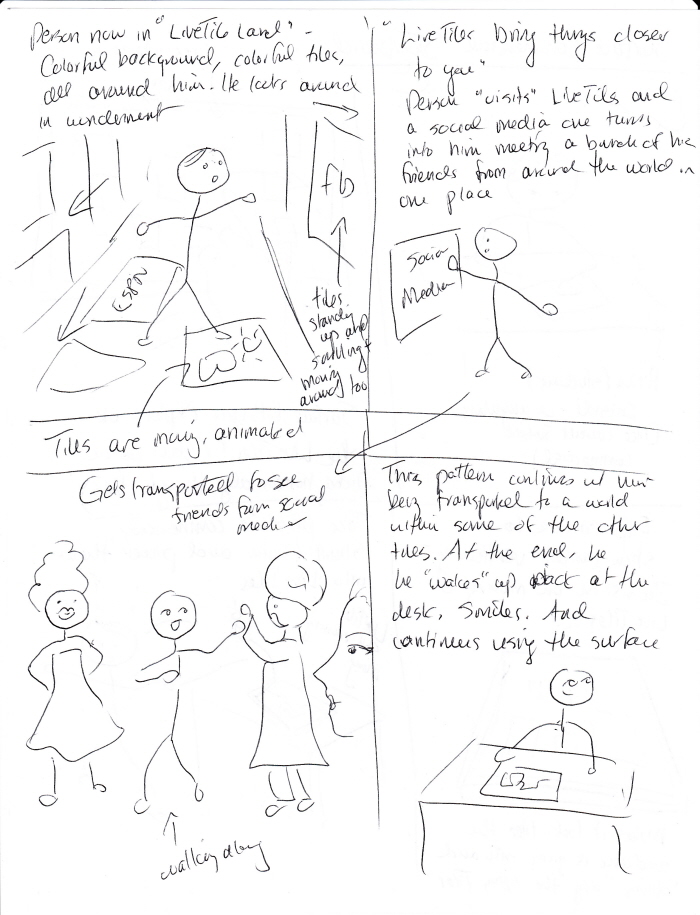 Person now in "LiveTile Land" -
Colorful background, colorful tiles,
all around him. He looks around
in wonderment
fb
ESPN
tiles
standing
up and
scrolling +
moving
around too
Tiles are moving, animated
"LiveTiles bring things closer
to you"
Person "visits" LiveTiles and
a social media one turns
into him meeting a bunch of his
friends from around the world in
one place
Social
Media
Gets transported to see
friends from social
media
walking along
This pattern continues w/ him
being transported to a world
within some of the other
tiles. At the end, he
he "wakes" up back at the
desk, smiles. And
continues using the surface